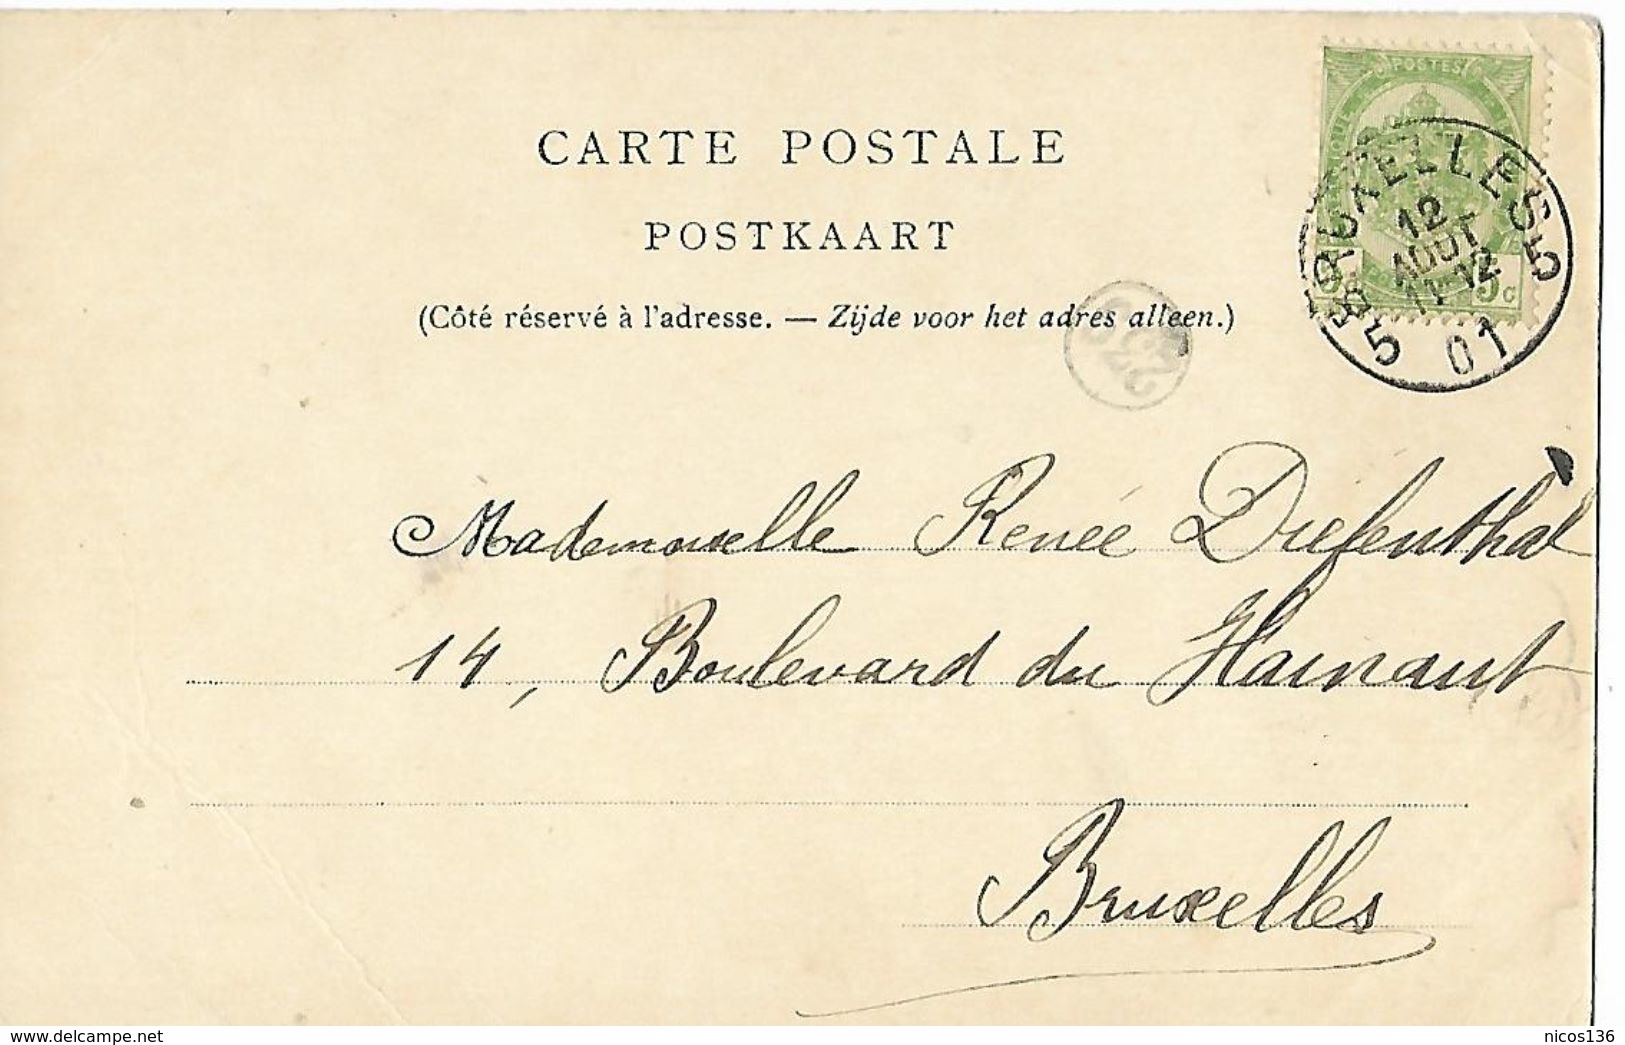 POSTES
CARTE POSTALE
BRUXELLES 5
12
AOUT
11-12
5 01
5c
POSTKAART
(Côté réservé à l'adresse. — Zijde voor het adres alleen.)
Mademoiselle Renée Diefenthal
14, Boulevard du Hainaut
Bruxelles
www.delcampe.net
nicos136